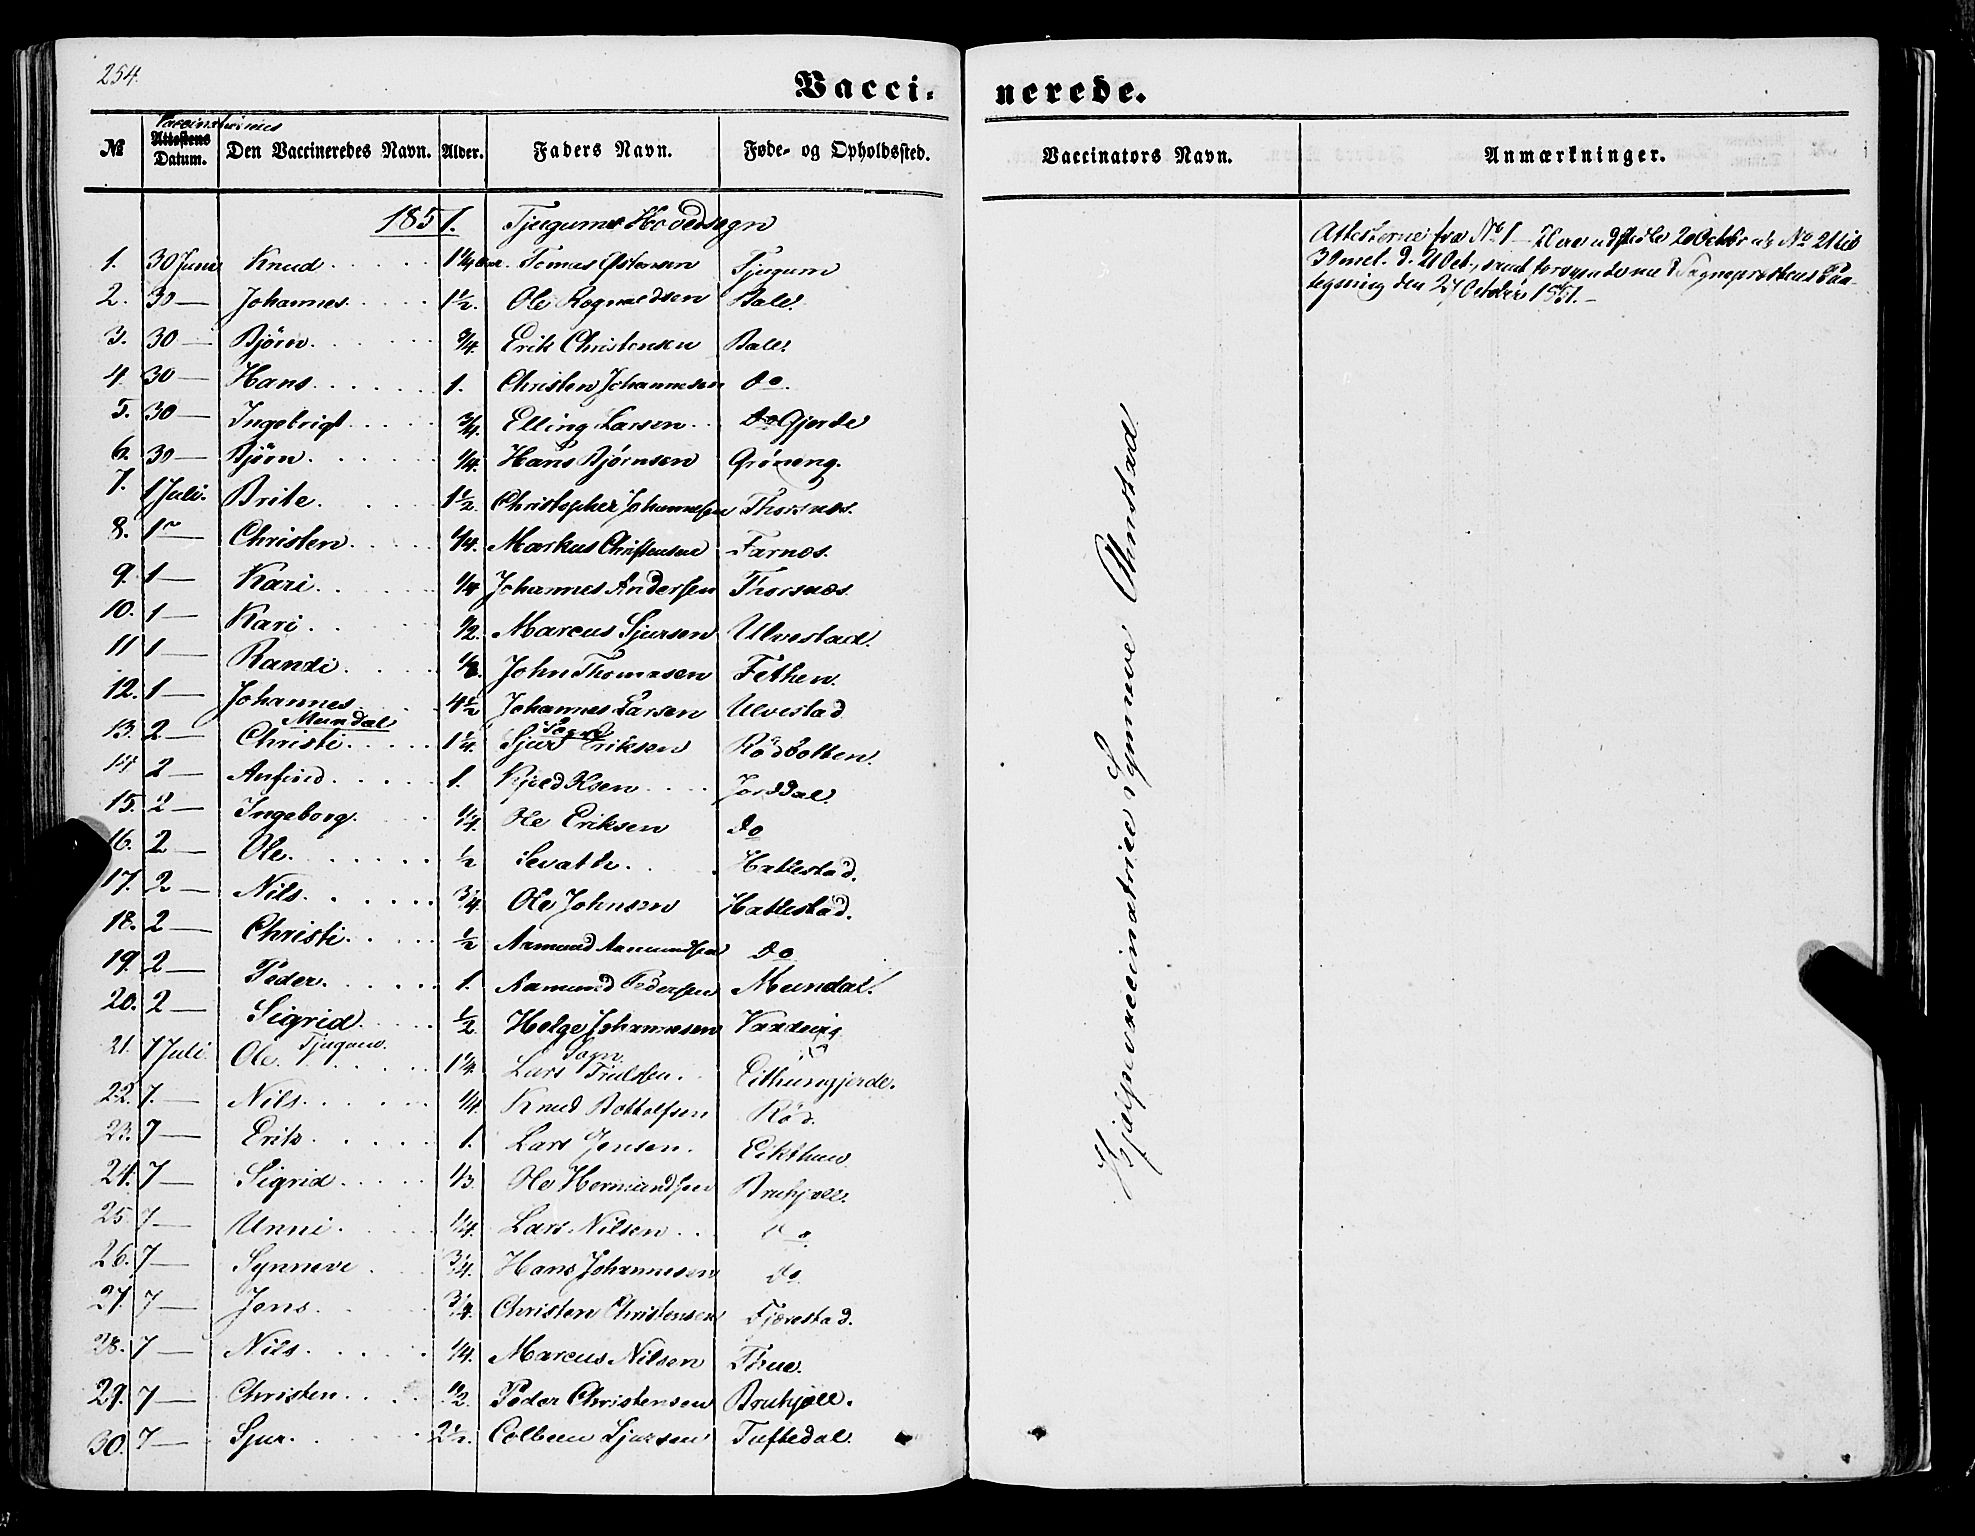 254.
Vacci-
nerede.
№ Vaccinationens Attestens Datum. Den Vaccineredes Navn. Alder. Faders Navn. Føde- og Opholdssted. Vaccinators Navn. Anmærkninger.
1851. Tjugums Hovedsogn
1. 30 Juni Knud 1 1/4 Aar. Tomas Tjugum
2. 30 — Johannes 1 1/2. Ole Rognaldsen Bale.
3. 30 — Bjørn 3/4. Erik Christensen Bale.
4. 30 — Hans 1. Christen Johannesen do.
5. 30 — Ingebrigt 3/4. Elling Larsen do Gjerde
6. 30 — Bjørn 1/4. Hans Bjørnsen Grøneng.
7. 1 Juli. Brite 1 1/2. Christopher Johannesen Thorsnæs.
8. 1 — Christen 1/4. Markus Christensen Farnæs.
9. 1 — Kari 1/4 Johannes Andersen Thorsnæs.
10. 1 — Kari 1/2. Marcus Sjursen Ulvestad.
11 1 — Randi John Thomasen Fethen.
12. 1 — Johannes 4 1/2 Johannes Larsen Ulvestad
Mundal Sogn
13. 2 — Christi 1 1/4. Sjur Eriksen Rødbotten.
14 2 — Anfind 1. Kjeld Jorddal.
15. 2 — Ingeborg 1/4. Ole Eriksen do
16. 2 — Ole 1/2 Hattestad.
17. 2 — Nils 3/4 Ole Johnsen Hattestad.
18. 2 — Christi 1/2 Aamund Aamundsen do
19. 2 — Peder 1. Aamund Pedersen Mundal.
20. 2 — Sigrid 1/2. Helge Johannesen
Tjugum Sogn
21. 7 Juli. Ole 1 1/4. Lars Trulsen.
22. 7. — Nils 1/4. Knud Bottolfsen Rød.
23. 7 — Erik 1. Lars Jensen. Eikthun
24. 7 — Sigrid 1/3. Ole Hermundsen
25. 7 — Unni 1/4. Lars Nilsen do.
26. 7 — Synneve 3/4. Hans Johannesen do
27. 7 — Jens 3/4. Christen Christensen Fjærestad.
28. 7 — Nils 1/4. Marcus Nilsen Thue.
29. 7 — Christen 1/2. Peder Christensen
30. 7 — Sjur 2 1/2. Colben Sjursen Tuftedal.
Hjælpevaccinatrice Synneve
Attesterne fra № 1 — 20 ere udstedte 20 Octbr og № 21 til
30 incl. d. 21 Oct., samt forsynede med Sogneprestens Paa-
tegning den 27 October 1851. —